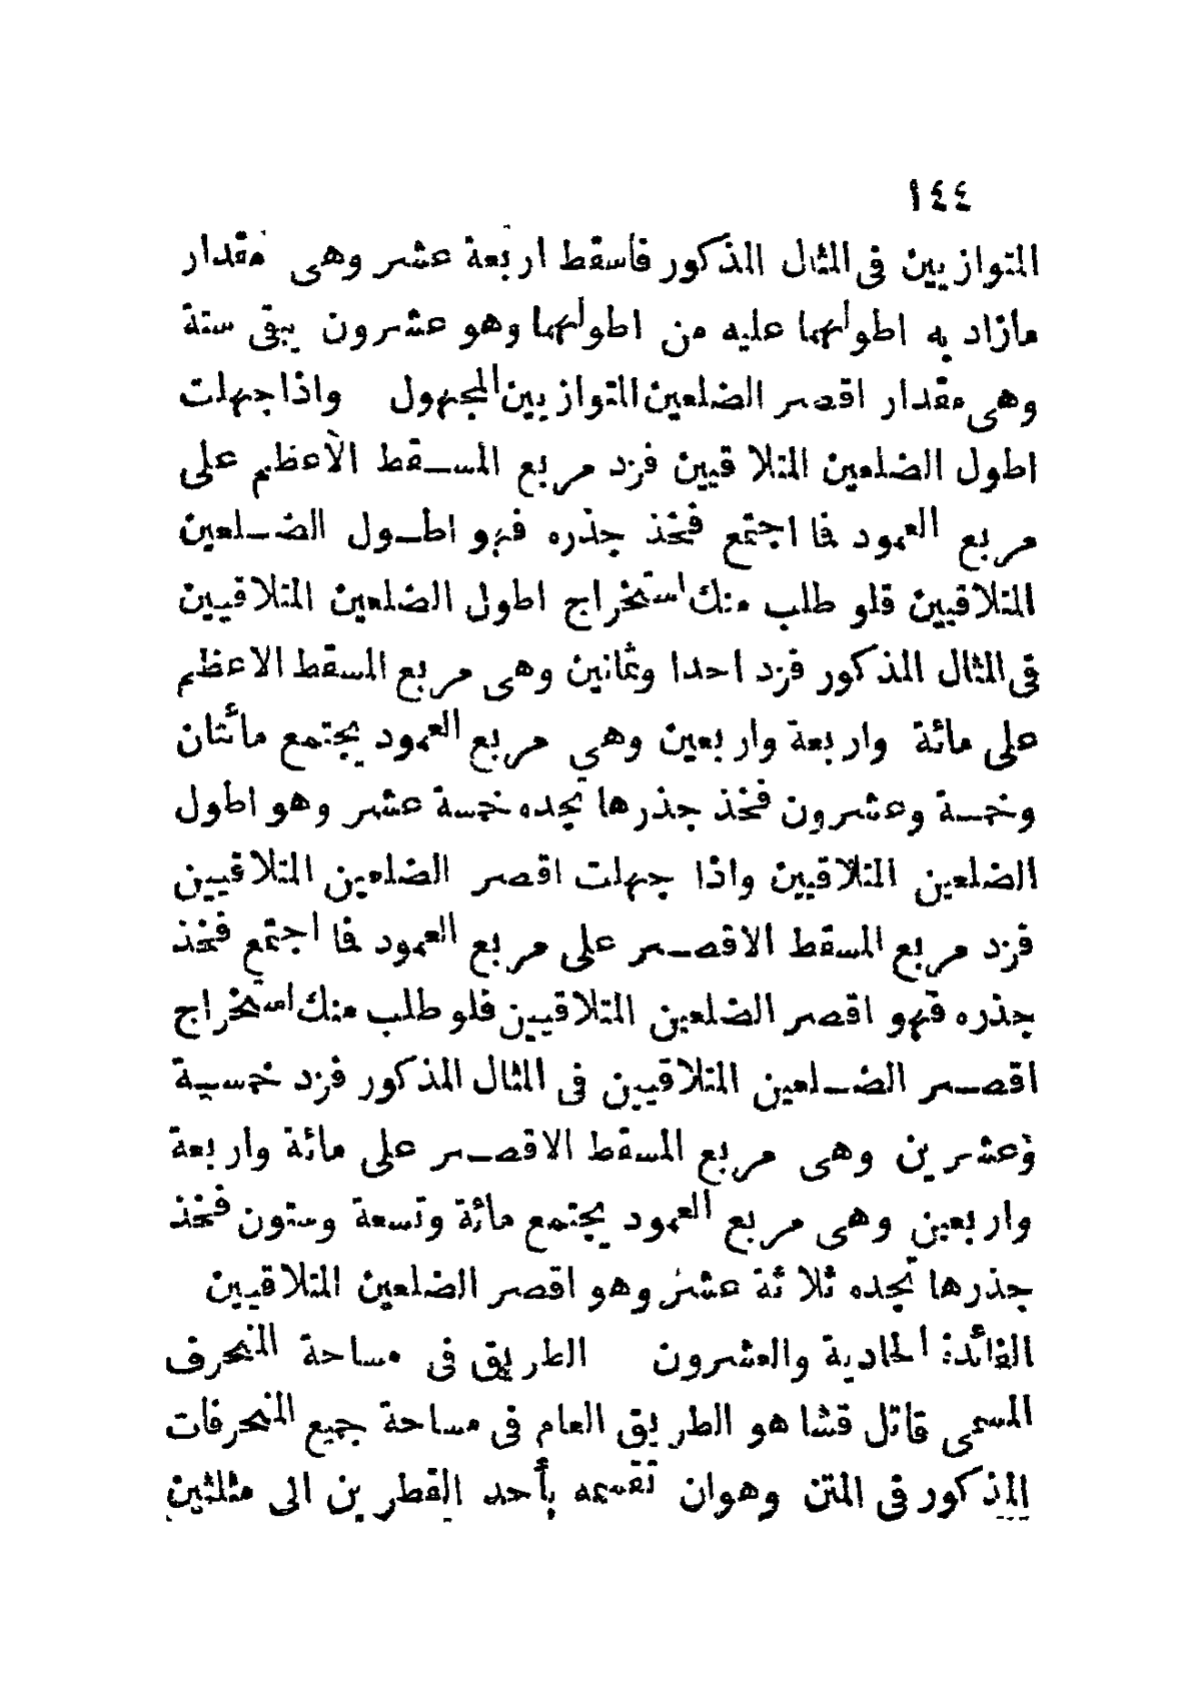 ١٤٤
المتوازيين فى المثال المذكور فأسقط اربعة عشر وهى مقدار
مازاد به اطولهما عليه من اطولهما وهو عشرون يبقى ستة
وهى مقدار اقصر الضلعين المتوازيين المجهول واذا جهلت
اطول الضلعين المتلاقيين فزد مربع المسقط الأعظم على
مربع العمود فما اجتمع فخذ جذره فهو اطول الضلعين
المتلاقيين فلو طلب منك استخراج اطول الضلعين المتلاقيين
فى المثال المذكور فزد احدا وثمانين وهى مربع المسقط الاعظم
على مائة واربعة واربعين وهى مربع العمود يجتمع مائتان
وخمسة وعشرون فخذ جذرها تجده خمسة عشر وهو اطول
الضلعين المتلاقيين واذا جهلت اقصر الضلعين المتلاقيين
فزد مربع المسقط الاقصر على مربع العمود فما اجتمع فخذ
جذره فهو اقصر الضلعين المتلاقيين فلو طلب منك استخراج
اقصر الضلعين المتلاقيين فى المثال المذكور فزد خمسة
وعشرين وهى مربع المسقط الاقصر على مائة واربعة
واربعين وهى مربع العمود يجتمع مائة وتسعة وستون فخذ
جذرها تجده ثلاثة عشر وهو اقصر الضلعين المتلاقيين
الفائدة الحادية والعشرون الطريق فى مساحة المنحرف
المسمى قاتل قشا هو الطريق العام فى مساحة جميع المنحرفات
المذكور فى المتن وهو ان تقسمه بأحد القطرين الى مثلثين